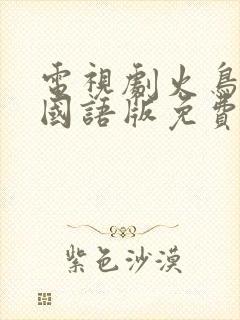 電視劇火鳥
國語版免費
紫色沙漠